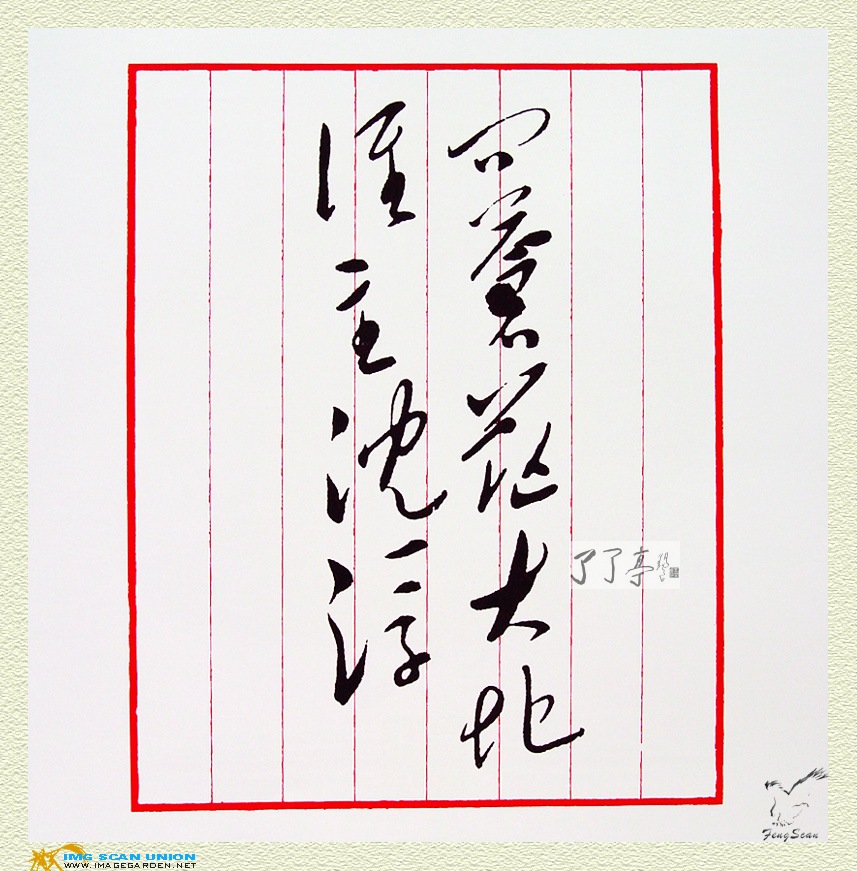 问蒼茫大地
谁主沈浮
了了亭
FengScan
IMG SCAN UNION
WWW.IMAGEGARDEN.NET